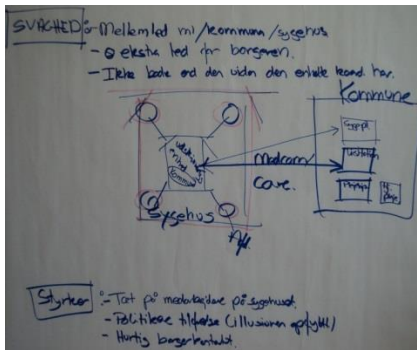 SVAGHED :- Mellemled ml/kommun/sygehus
- ekstra led for borgeren.
- Ikke bedre end den viden den enkelte koord. har.
Kommune
Visitation
enhed
Kommune
Medcom/
Care.
Sygehus
Afd.
Styrker :- Tæt på medarbejdere på sygehuset.
- Politikere tilfredse (illusionen opfyldt)
- Hurtig borgerkontakt.